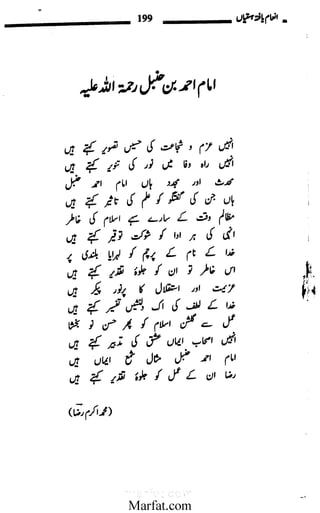 انعام یافتہ ہستیاں
199
امام احمد بن حنبل رحمۃ اللہ علیہ
انہیں عزم و شجاعت کی حسیں تصویر کہتے ہیں
انہیں راہ وفا میں نور کی تنویر کہتے ہیں
محدث اور مجدد ہاں امام احمد حنبل
ہاں جن کی گفتگو کو علم کی تاثیر کہتے ہیں
مظالم وقت کے سارے سہے اسلام کی خاطر
انہی کی ہر ادا کو شوکت توقیر کہتے ہیں
خدا کے نام کے پرچم کو لہرایا بلندی پر
اس خاطر تو ان کو جلوۂ تقدیر کہتے ہیں
عزیمت اور استقلال کا پرنور پیکر ہیں
خدا کے لطف کی اک دلنشیں تفسیر کہتے ہیں
عمل سے گلشن اسلام کو پھر حسن نو بخشا
انہیں اصحاب ایماں عشق کی تدبیر کہتے ہیں
امام احمد حنبل مثال شمع ایماں ہیں
رضا ان کے عمل کو جلوۂ تقدیر کہتے ہیں
(محمد اکرم رضا)
Marfat.com